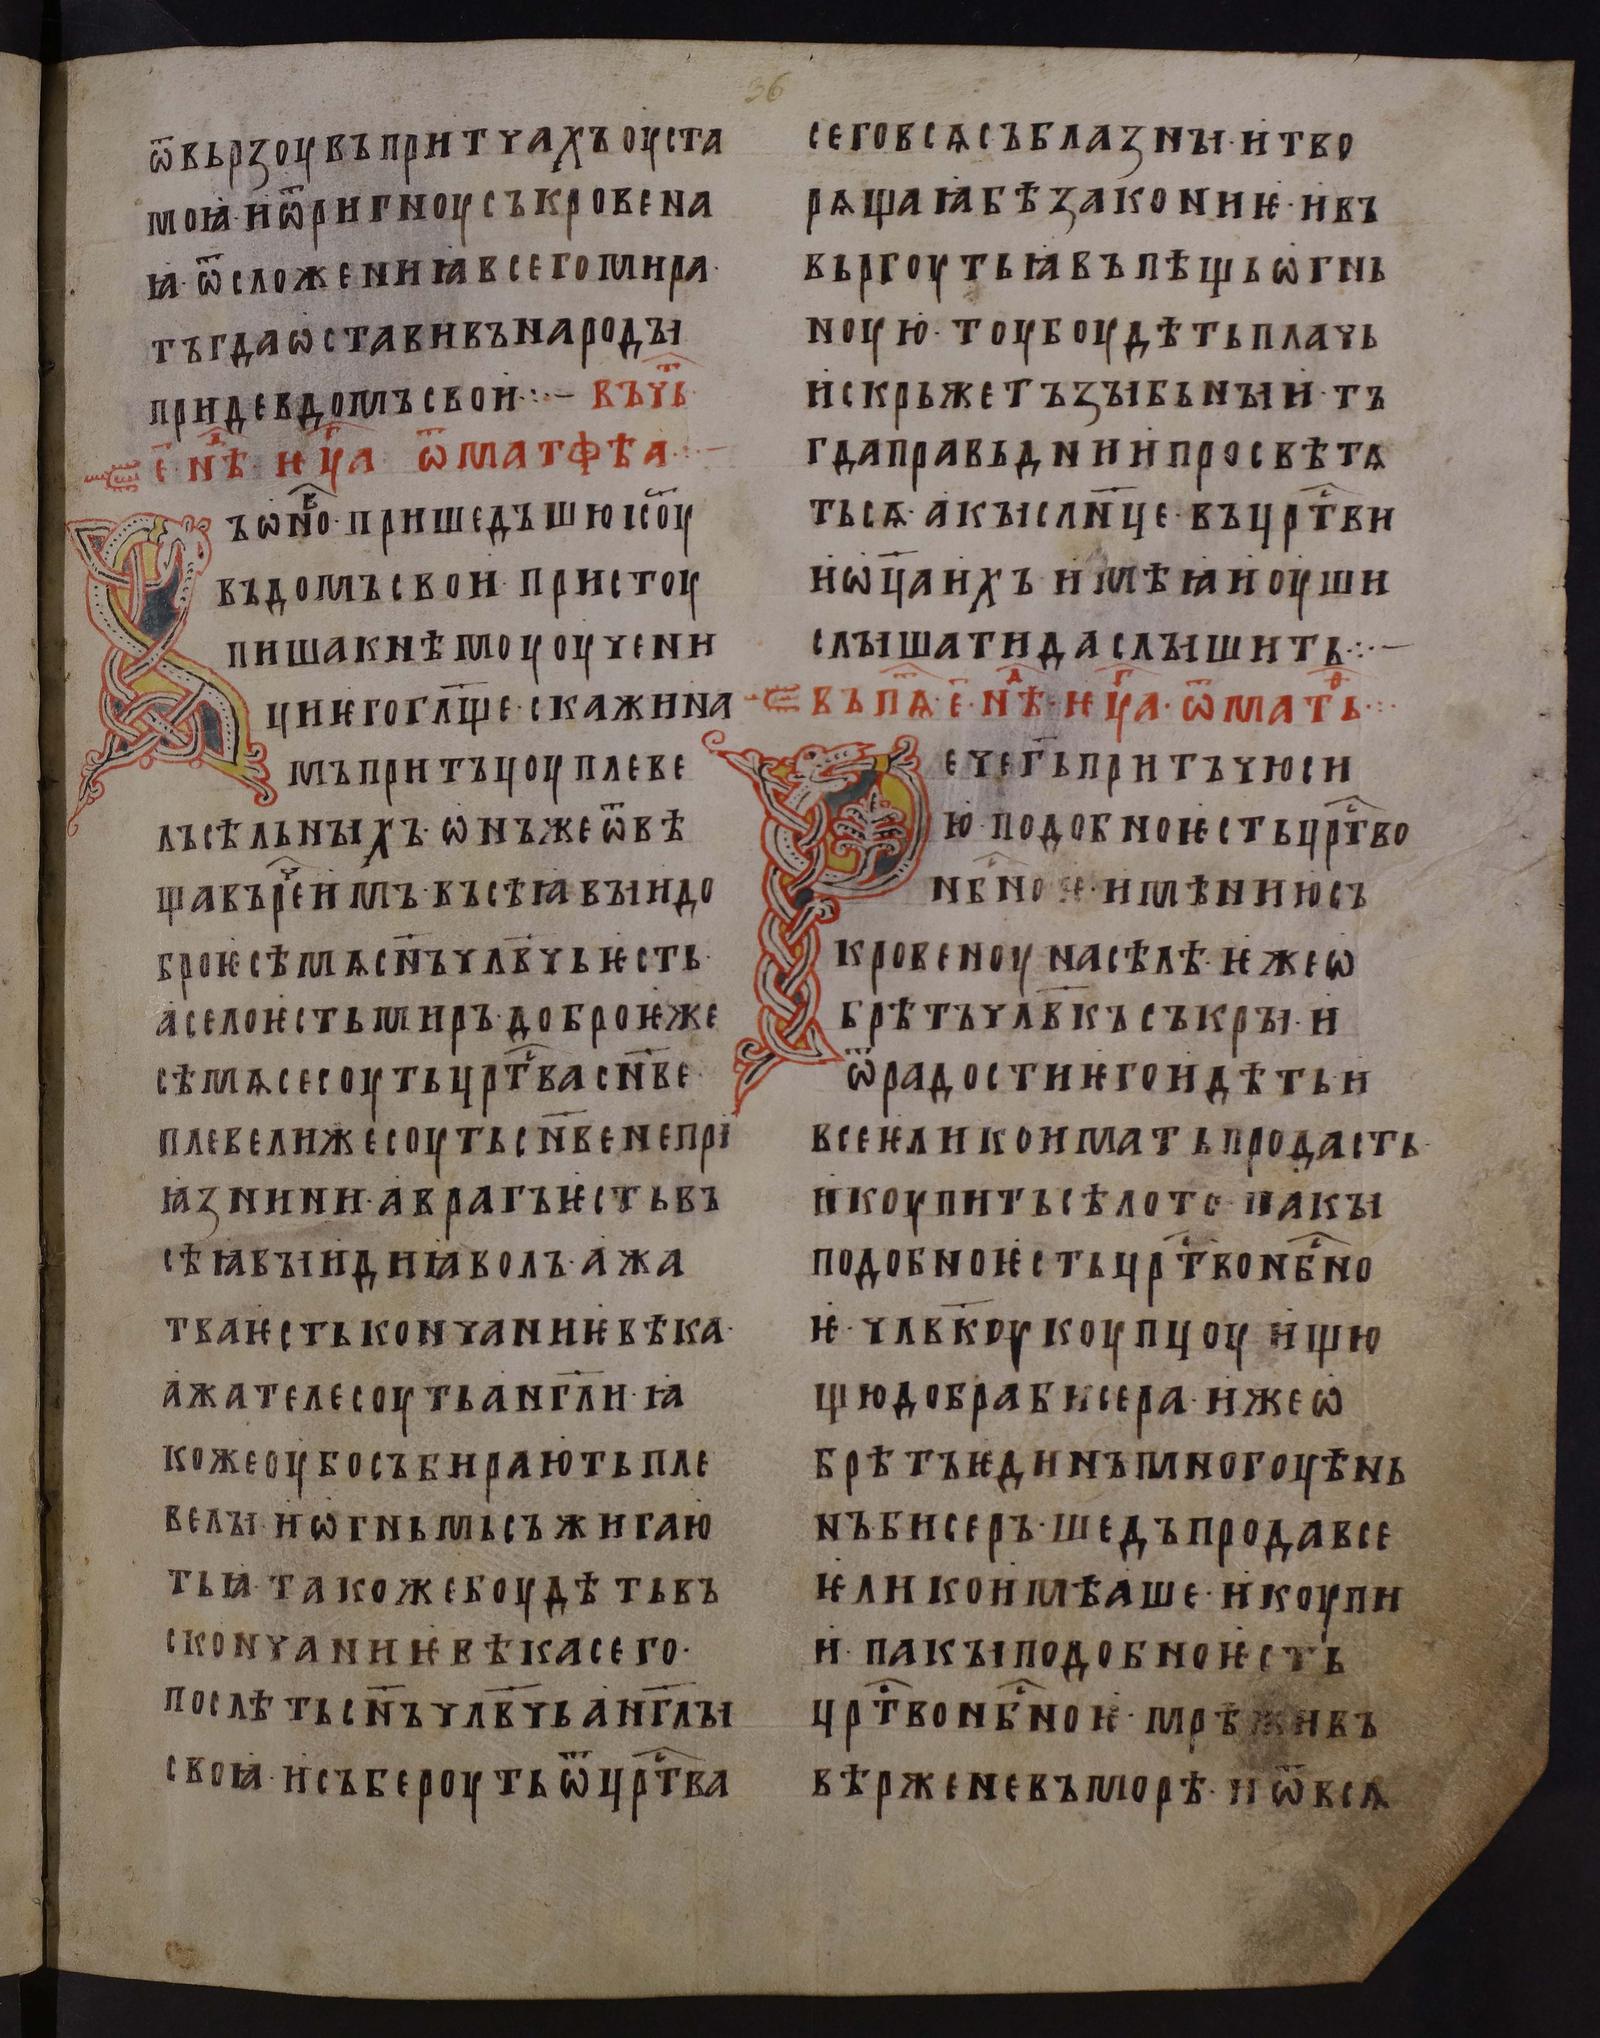 36
ѿвьрзоувъпритчахъоуста
моꙗ·иѿригноусъкровена
ꙗ·ѿсложениꙗвсегомира·
тъгдаѡставивънароды
придевдомъсвои·:·– въчⷮь·
е҃·нⷣѣ·ѥⷢ҇уа ѿматфѣа·:–
ъѡⷡно·пришедъшюісо҃у
въдомъсвои·пристоу
пишакнѣмоуоучени
циѥгогл҃ще·скажина
мъпритъцоуплеве
лъсѣльныхъ·ѡнъжеѿвѣ
щавъреⷱ҇имъ·въсѣꙗвыидо
броѥсѣмѧсн҃ъчлв҃чьѥсть·
аселоѥстьмиръ·доброѥже
сѣмѧсесоутьцрⷭ҇твасн҃ве·
плевелижесоутьсн҃венепрі
ꙗзнини·аврагъѥстьвъ
сѣꙗвыидиꙗволъ·ажа
тваѥстьконъчаниѥвѣка·
ажателесоутьанг҃ли·ꙗ
кожеоубосъбираютьпле
велы·иѡгньмьсъжигаю
тьꙗ·такожебоудѣтьвъ
скончаниѥвѣкасего·
послѣтьсн҃ъчлв҃чьанг҃лы
своꙗ·исъбероутьѿцрⷭ҇тва
сеговсѧсъблазны·итво
рѧщаꙗбѣзакониѥ·ивъ
вьргоутьꙗвъпѣщьѡгнь
ноую·тоубоудѣтьплачь
искрьжетъзыбьныи·тъ
гдаправьдниипросвѣтѧ
тьсѧ·акыслн҃це·въцрⷭ҇тви
иѡц҃аихъ·имѣꙗиоуши
слышатидаслышить·:·–
въпѧⷮ·е҃·нⷣѣ·ѥⷢ҇уа·ѿматⷴь·:·
ечег҃ьпритъчюси
ю·подобноѥстьцрⷭ҇тво
нбⷭ҇ноѥ·имѣниюсъ
кровеноунасѣлѣ·ѥжеѡ
брѣтъчлв҃късъкры·и
ѿрадостиѥгоидѣтьи
всеѥликоиматьпродасть·
икоупитьсѣлото·пакы
подобноѥстьцрⷭ҇твонбⷭ҇но
ѥ·члвк҃оукоупцоу ищю
щюдобрабисера·ижеѡ
брѣтъѥдинъмногоцѣнь
нъбисеръ·шедъпродавсе
ѥликоимѣаше·икоупи
и·пакыподобноѥсть
црⷭ҇твонбⷭ҇ноѥ·мрѣживъ
вѣрженевъморѣ·иѿвсѧ